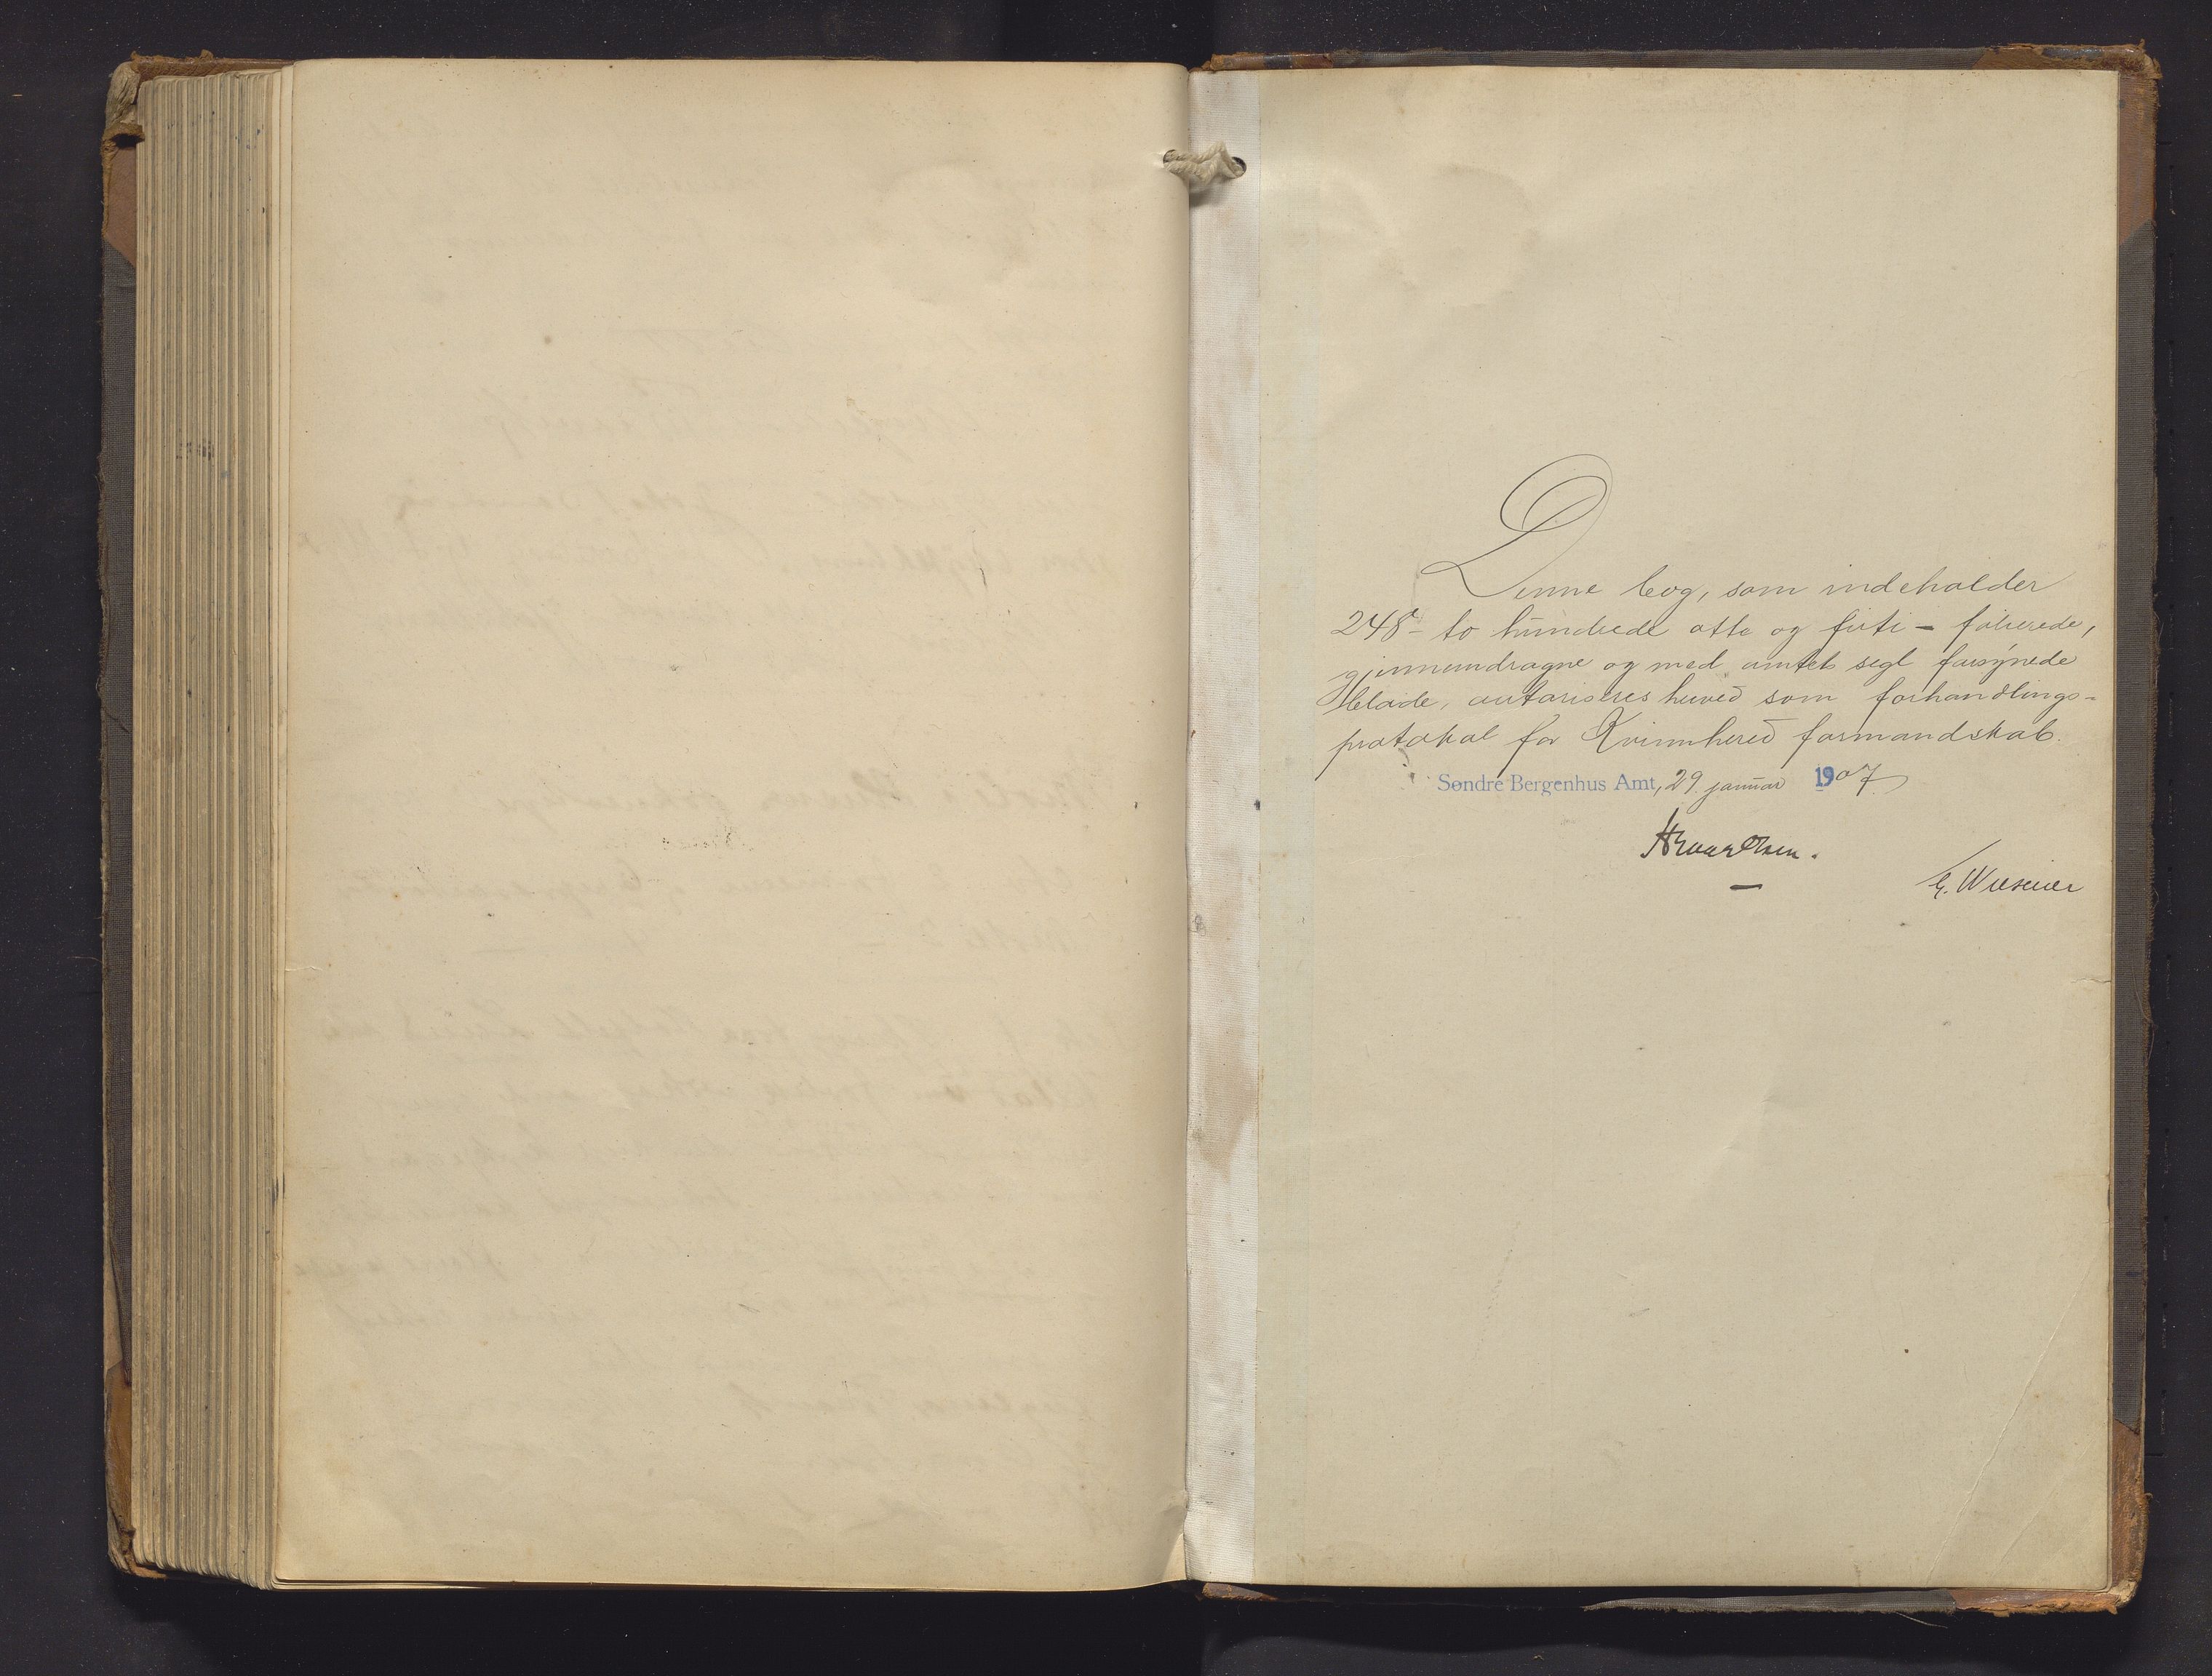 Denne bog, som indeholder
248 - to hundrede otte og firti - folierede,
gjennemdragne og med amtets segl forsynede
blade, autoriseres herved som forhandlings-
protokol for Kvinnhered formandskab.
Søndre Bergenhus Amt, 29. januar 1907
Hroar Olsen.
E. Wiesener